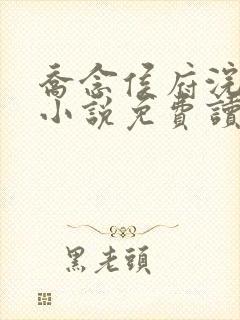 喬念侯府浣
小說免費讀
黑老頭